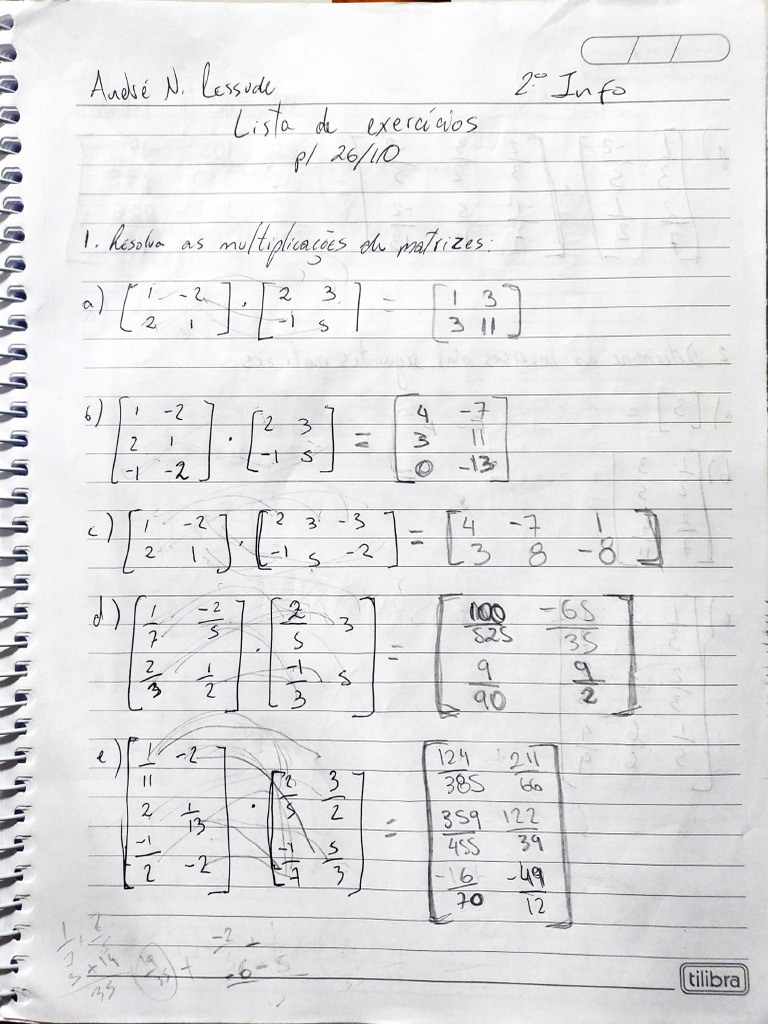 André N. Lessude 2º Info
Lista de exercícios
p/ 26/10
1. Resolva as multiplicações de matrizes:
a) [1 -2; 2 1] . [2 3; -1 5] = [1 3; 3 11]
b) [1 -2; 2 1; -1 -2] . [2 3; -1 5] = [4 -7; 3 11; 0 -13]
c) [1 -2; 2 1] . [2 3 -3; -1 5 -2] = [4 -7 1; 3 8 -8]
d) [1/7 -2/5; 2/3 1/2] . [2/5 3; -1/3 5] = [100/525 -65/35; 9/90 9/2]
e) [1/11 -2; 2 1/13; -1/2 -2] . [2/5 3/2; -1/7 5/3] = [124/385 211/66; 359/455 122/39; -16/70 -49/12]
tilibra